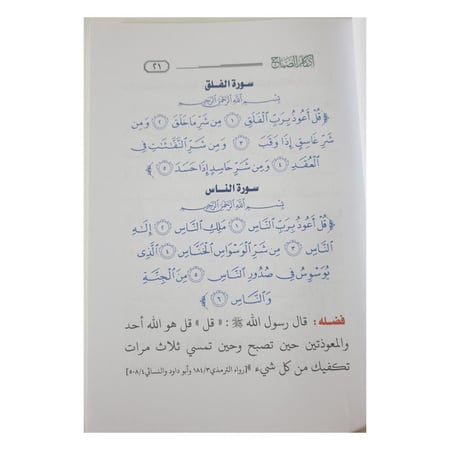 أذكار الصباح
٢١
سورة الفلق
بِسْمِ ٱللَّهِ ٱلرَّحْمَٰنِ ٱلرَّحِيمِ
﴿قُلْ أَعُوذُ بِرَبِّ ٱلْفَلَقِ ۝١ مِن شَرِّ مَا خَلَقَ ۝٢ وَمِن
شَرِّ غَاسِقٍ إِذَا وَقَبَ ۝٣ وَمِن شَرِّ ٱلنَّفَّٰثَٰتِ فِى
ٱلْعُقَدِ ۝٤ وَمِن شَرِّ حَاسِدٍ إِذَا حَسَدَ ۝٥﴾
سورة الناس
بِسْمِ ٱللَّهِ ٱلرَّحْمَٰنِ ٱلرَّحِيمِ
﴿قُلْ أَعُوذُ بِرَبِّ ٱلنَّاسِ ۝١ مَلِكِ ٱلنَّاسِ ۝٢ إِلَٰهِ
ٱلنَّاسِ ۝٣ مِن شَرِّ ٱلْوَسْوَاسِ ٱلْخَنَّاسِ ۝٤ ٱلَّذِى
يُوَسْوِسُ فِى صُدُورِ ٱلنَّاسِ ۝٥ مِنَ ٱلْجِنَّةِ
وَٱلنَّاسِ ۝٦﴾
فضله: قال رسول الله ﷺ: «قل» قل هو الله أحد
والمعوذتين حين تصبح وحين تمسي ثلاث مرات
تكفيك من كل شيء» [رواه الترمذي ١٨٤/٣ وأبو داود والنسائي ٥٠٨/٤]